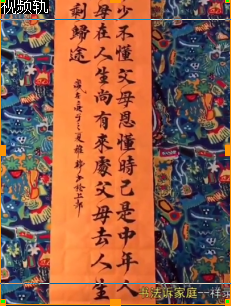 视频轨
少不懂父母恩懂時已是中年人
母在人生尚有來處父母去人生
剩歸途
书法诉家庭一样亲